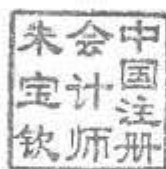 中国注册
会计师
朱宝钦